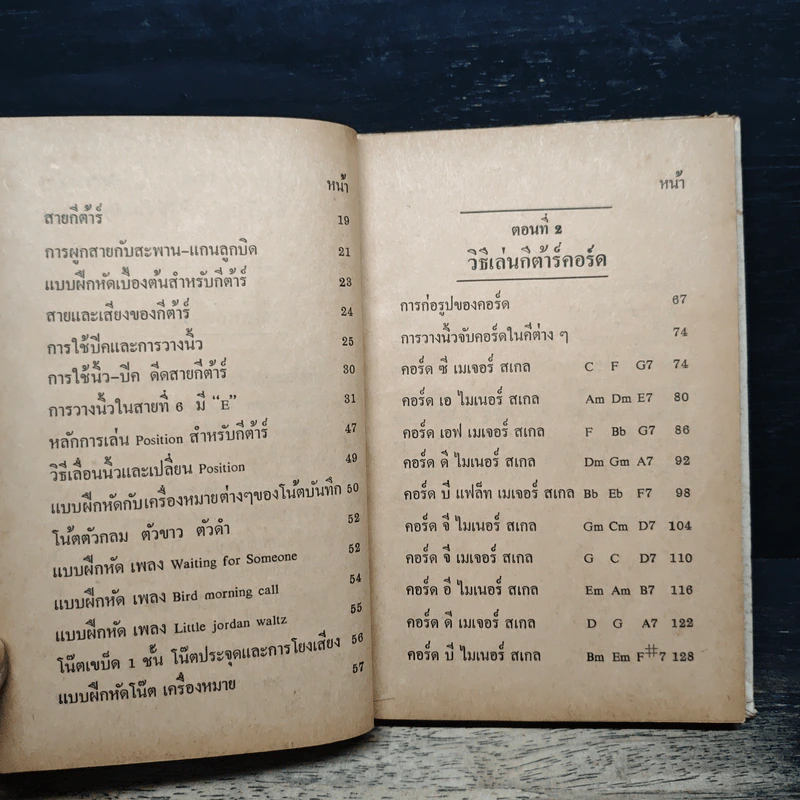 หน้า
สายกีต้าร์ 19
การผูกสายกับสะพาน–แกนลูกบิด 21
แบบฝึกหัดเบื้องต้นสำหรับกีต้าร์ 23
สายและเสียงของกีต้าร์ 24
การใช้ปีคและการวางนิ้ว 25
การใช้นิ้ว–ปีค ดีดสายกีต้าร์ 30
การวางนิ้วในสายที่ 6 มี “E” 31
หลักการเล่น Position สำหรับกีต้าร์ 47
วิธีเลื่อนนิ้วและเปลี่ยน Position 49
แบบฝึกหัดกับเครื่องหมายต่างๆของโน้ตบันทึก 50
โน้ตตัวกลม ตัวขาว ตัวดำ 52
แบบฝึกหัด เพลง Waiting for Someone 52
แบบฝึกหัด เพลง Bird morning call 54
แบบฝึกหัด เพลง Little jordan waltz 55
โน๊ตเขบ็ด 1 ชั้น โน๊ตประจุดและการโยงเสียง 56
แบบฝึกหัดโน๊ต เครื่องหมาย 57
หน้า
ตอนที่ 2
วิธีเล่นกีต้าร์คอร์ด
การก่อรูปของคอร์ด 67
การวางนิ้วจับคอร์ดในคีต่าง ๆ 74
คอร์ด ซี เมเจอร์ สเกล C F G7 74
คอร์ด เอ ไมเนอร์ สเกล Am Dm E7 80
คอร์ด เอฟ เมเจอร์ สเกล F Bb G7 86
คอร์ด ดี ไมเนอร์ สเกล Dm Gm A7 92
คอร์ด บี แฟล็ท เมเจอร์ สเกล Bb Eb F7 98
คอร์ด จี ไมเนอร์ สเกล Gm Cm D7 104
คอร์ด จี เมเจอร์ สเกล G C D7 110
คอร์ด อี ไมเนอร์ สเกล Em Am B7 116
คอร์ด ดี เมเจอร์ สเกล D G A7 122
คอร์ด บี ไมเนอร์ สเกล Bm Em F#7 128